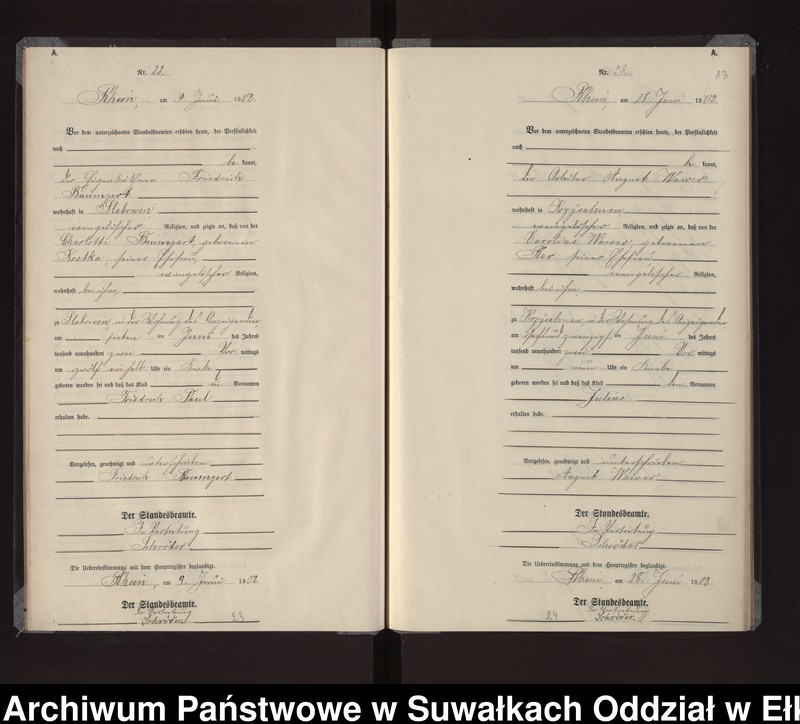 A.
Nr. 22.
Rhein, am 9. Juni 1902.
Vor dem unterzeichneten Standesbeamten erschien heute, der Persönlichkeit
nach
be kannt,
der Eigenkäthner Friedrich
Baumgart
wohnhaft in Slabowen
evangelischer Religion, und zeigte an, daß von der
Charlotte Baumgart, geborenen
seiner Ehefrau,
evangelischer Religion,
wohnhaft bei ihm,
zu Slabowen, in der Wohnung des Anzeigenden
am sieben ten Juni des Jahres
tausend neunhundert zwei Vor mittags
um zwölf einhalb Uhr ein Knabe
geboren worden sei und daß das Kind die Vornamen
Friedrich Paul
erhalten habe.
Vorgelesen, genehmigt und unterschrieben
Friedrich Baumgart
Der Standesbeamte.
In Vertretung
Schröder
Die Uebereinstimmung mit dem Hauptregister beglaubigt.
Rhein, am 9. Juni 1902
Der Standesbeamte.
In Vertretung
Schröder
23
A.
13
Nr. 23.
Rhein, am 28. Juni 1902.
Vor dem unterzeichneten Standesbeamten erschien heute, der Persönlichkeit
nach
be kannt,
der Arbeiter August Wawer
wohnhaft in
evangelischer Religion, und zeigte an, daß von der
Caroline Wawer, geborenen
seiner Ehefrau
evangelischer Religion,
wohnhaft bei ihm
zu in der Wohnung des Anzeigenden
am sechsundzwanzigsten Juni des Jahres
tausend neunhundert zwei Vor mittags
um neun Uhr ein Knabe
geboren worden sei und daß das Kind den Vornamen
Julius
erhalten habe.
Vorgelesen, genehmigt und unterschrieben
August Wawer
Der Standesbeamte.
In Vertretung
Schröder
Die Uebereinstimmung mit dem Hauptregister beglaubigt.
Rhein, am 28. Juni 1902
Der Standesbeamte.
In Vertretung
Schröder.
24
Archiwum Państwowe w Suwałkach Oddział w Eł